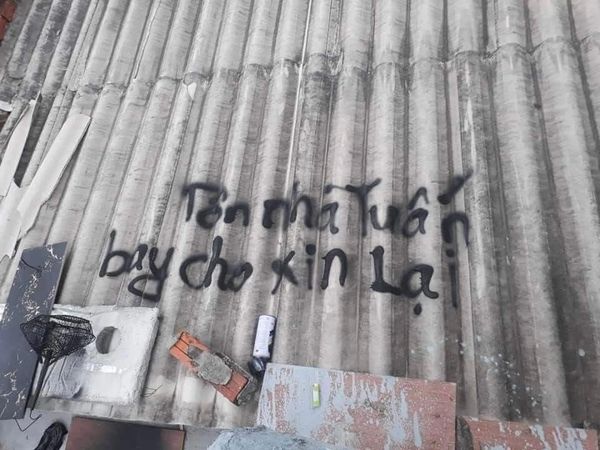 Tôn nhà Tuấn
bay cho xin lại